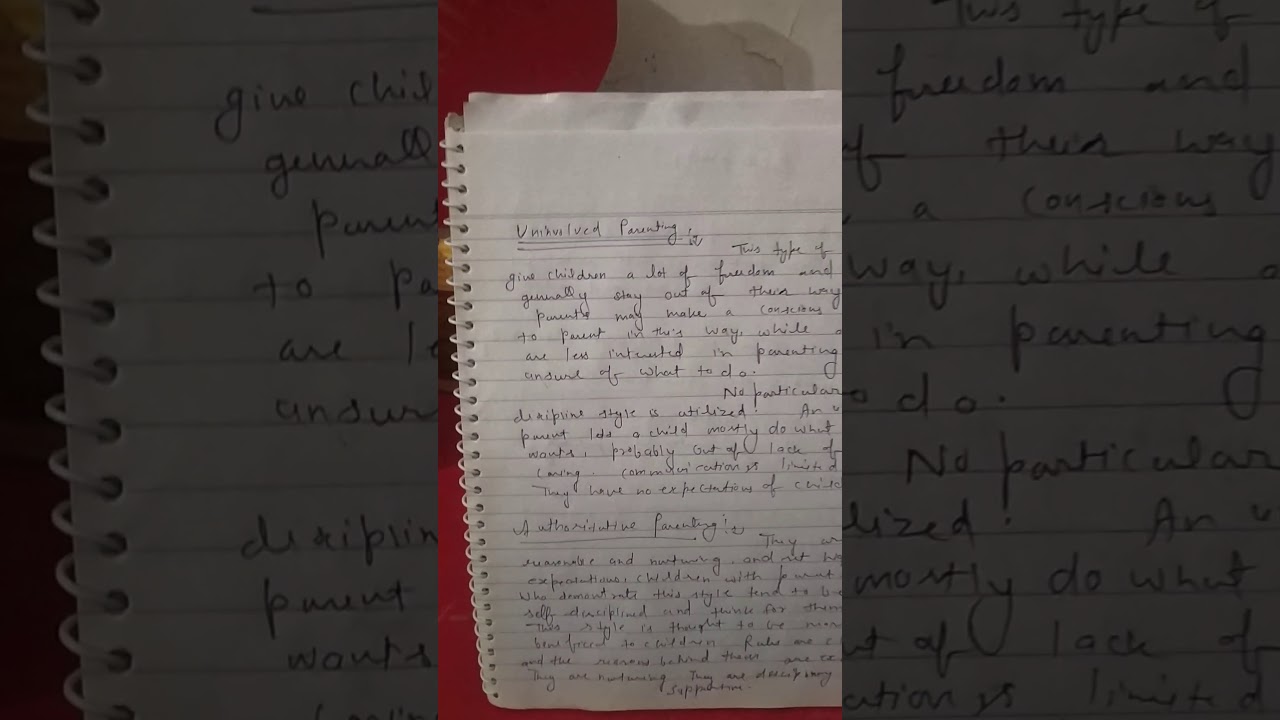 Uninvolved Parenting :
This type of
give children a lot of freedom and
generally stay out of their way
parents may make a conscious
to parent in this way, while a
are less interested in parenting
unsure of what to do.
No particular
discipline style is utilized! An u
parent lets a child mostly do what
wants, probably out of lack of
Caring. communication is limited
They have no expectations of child
Authoritative Parenting :
They ar
reasonable and nurturing, and set hig
expectations, children with parent
who demonstrate this style tend to be
self disciplined and think for them
This style is thought to be mor
beneficial to children. Rules are cl
and the reasons behind them are ex
They are nurturing. They are
supportive.